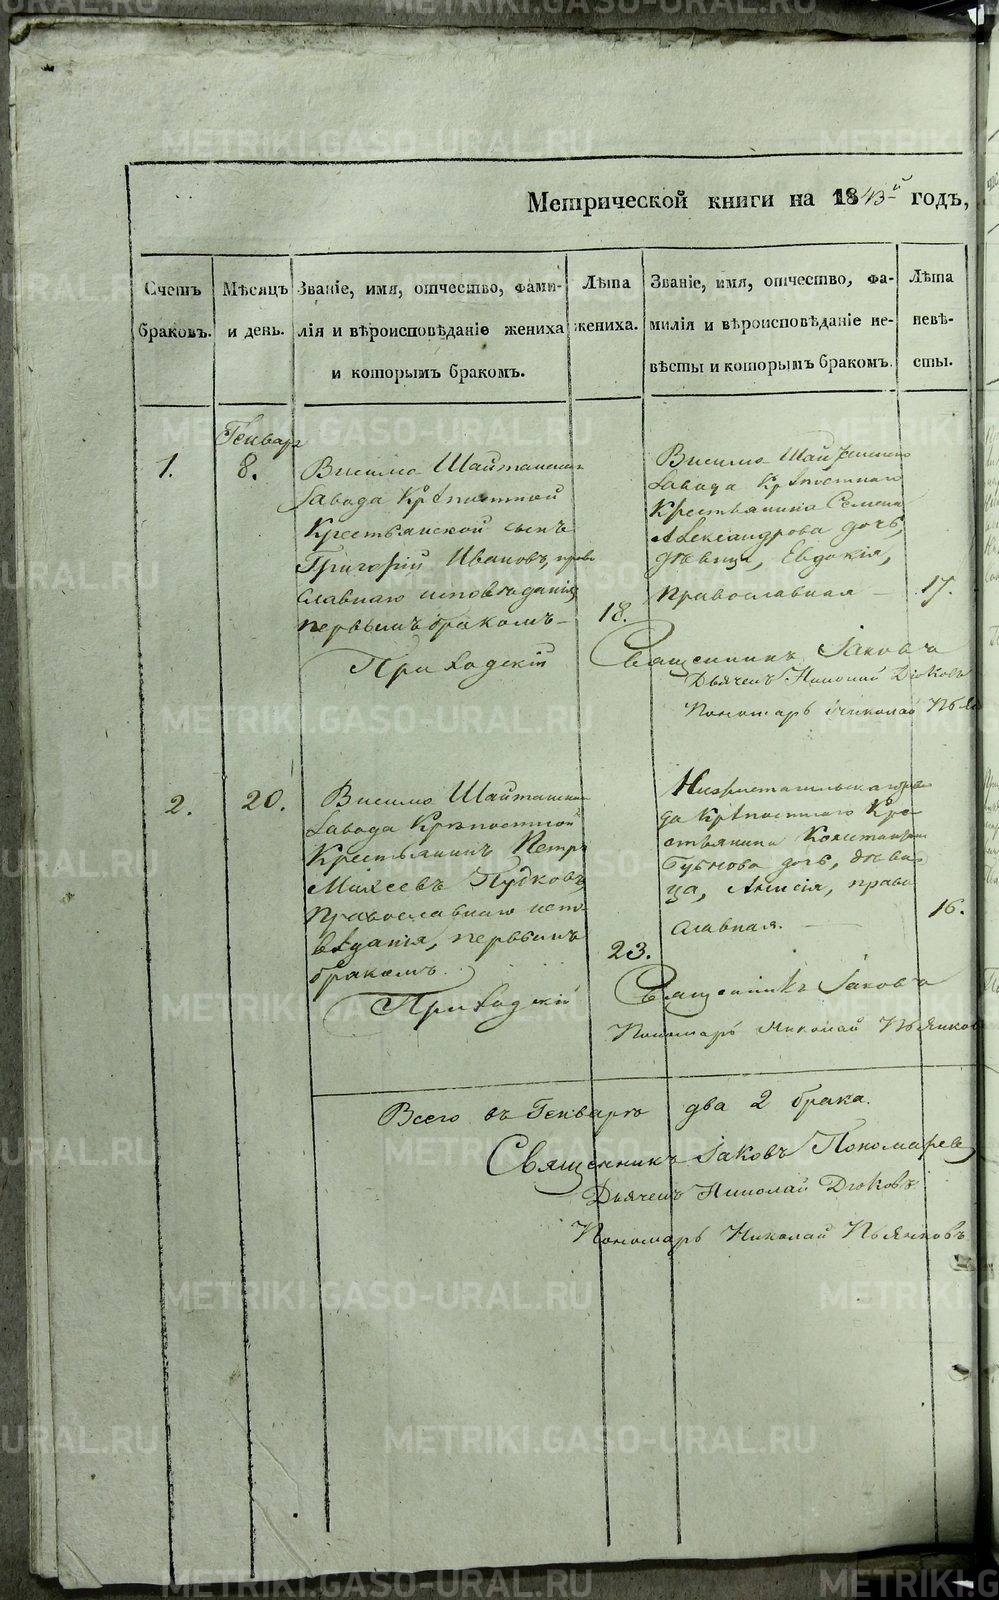 Метрической книги на 1843й годъ,
Счетъ браковъ.
Мѣсяцъ и день.
Званіе, имя, отчество, фами-
лія и вѣроисповѣданіе жениха
и которымъ бракомъ.
Лѣта жениха.
Званіе, имя, отчество, фа-
милія и вѣроисповѣданіе не-
вѣсты и которымъ бракомъ.
Лѣта невѣ-
сты.
Генварь
1.
8.
Висимо Шайтанскаго
завода Крѣпостной
Крестьянской сынъ
Григорій Ивановъ, право
славнаго исповѣданія
первымъ бракомъ
18.
Висимо Шайтанскаго
завода Крѣпостнаго
Крестьянина Семена
Александрова дочь,
дѣвица, Евдокія,
православная
17.
Приходскій Священникъ Іаковъ
Дьячекъ Николай Дюковъ
Пономарь Николай
2.
20.
Висимо Шайтанскаго
завода Крѣпостной
Крестьянинъ Петръ
Михеевъ
Православнаго испо-
вѣданія, первымъ
бракомъ.
23.
да Крѣпостнаго Кре-
стьянина Константина
дочь, дѣви-
ца, Анисія, право
славная.
16.
Приходскій Священникъ Іаковъ
Пономарь Николай Пьянков
Всего въ Генварѣ два 2 брака.
Священникъ Іаковъ Пономаревъ
Дьячекъ Николай Дюковъ
Пономарь Николай Пьянковъ
METRIKI.GASO-URAL.RU